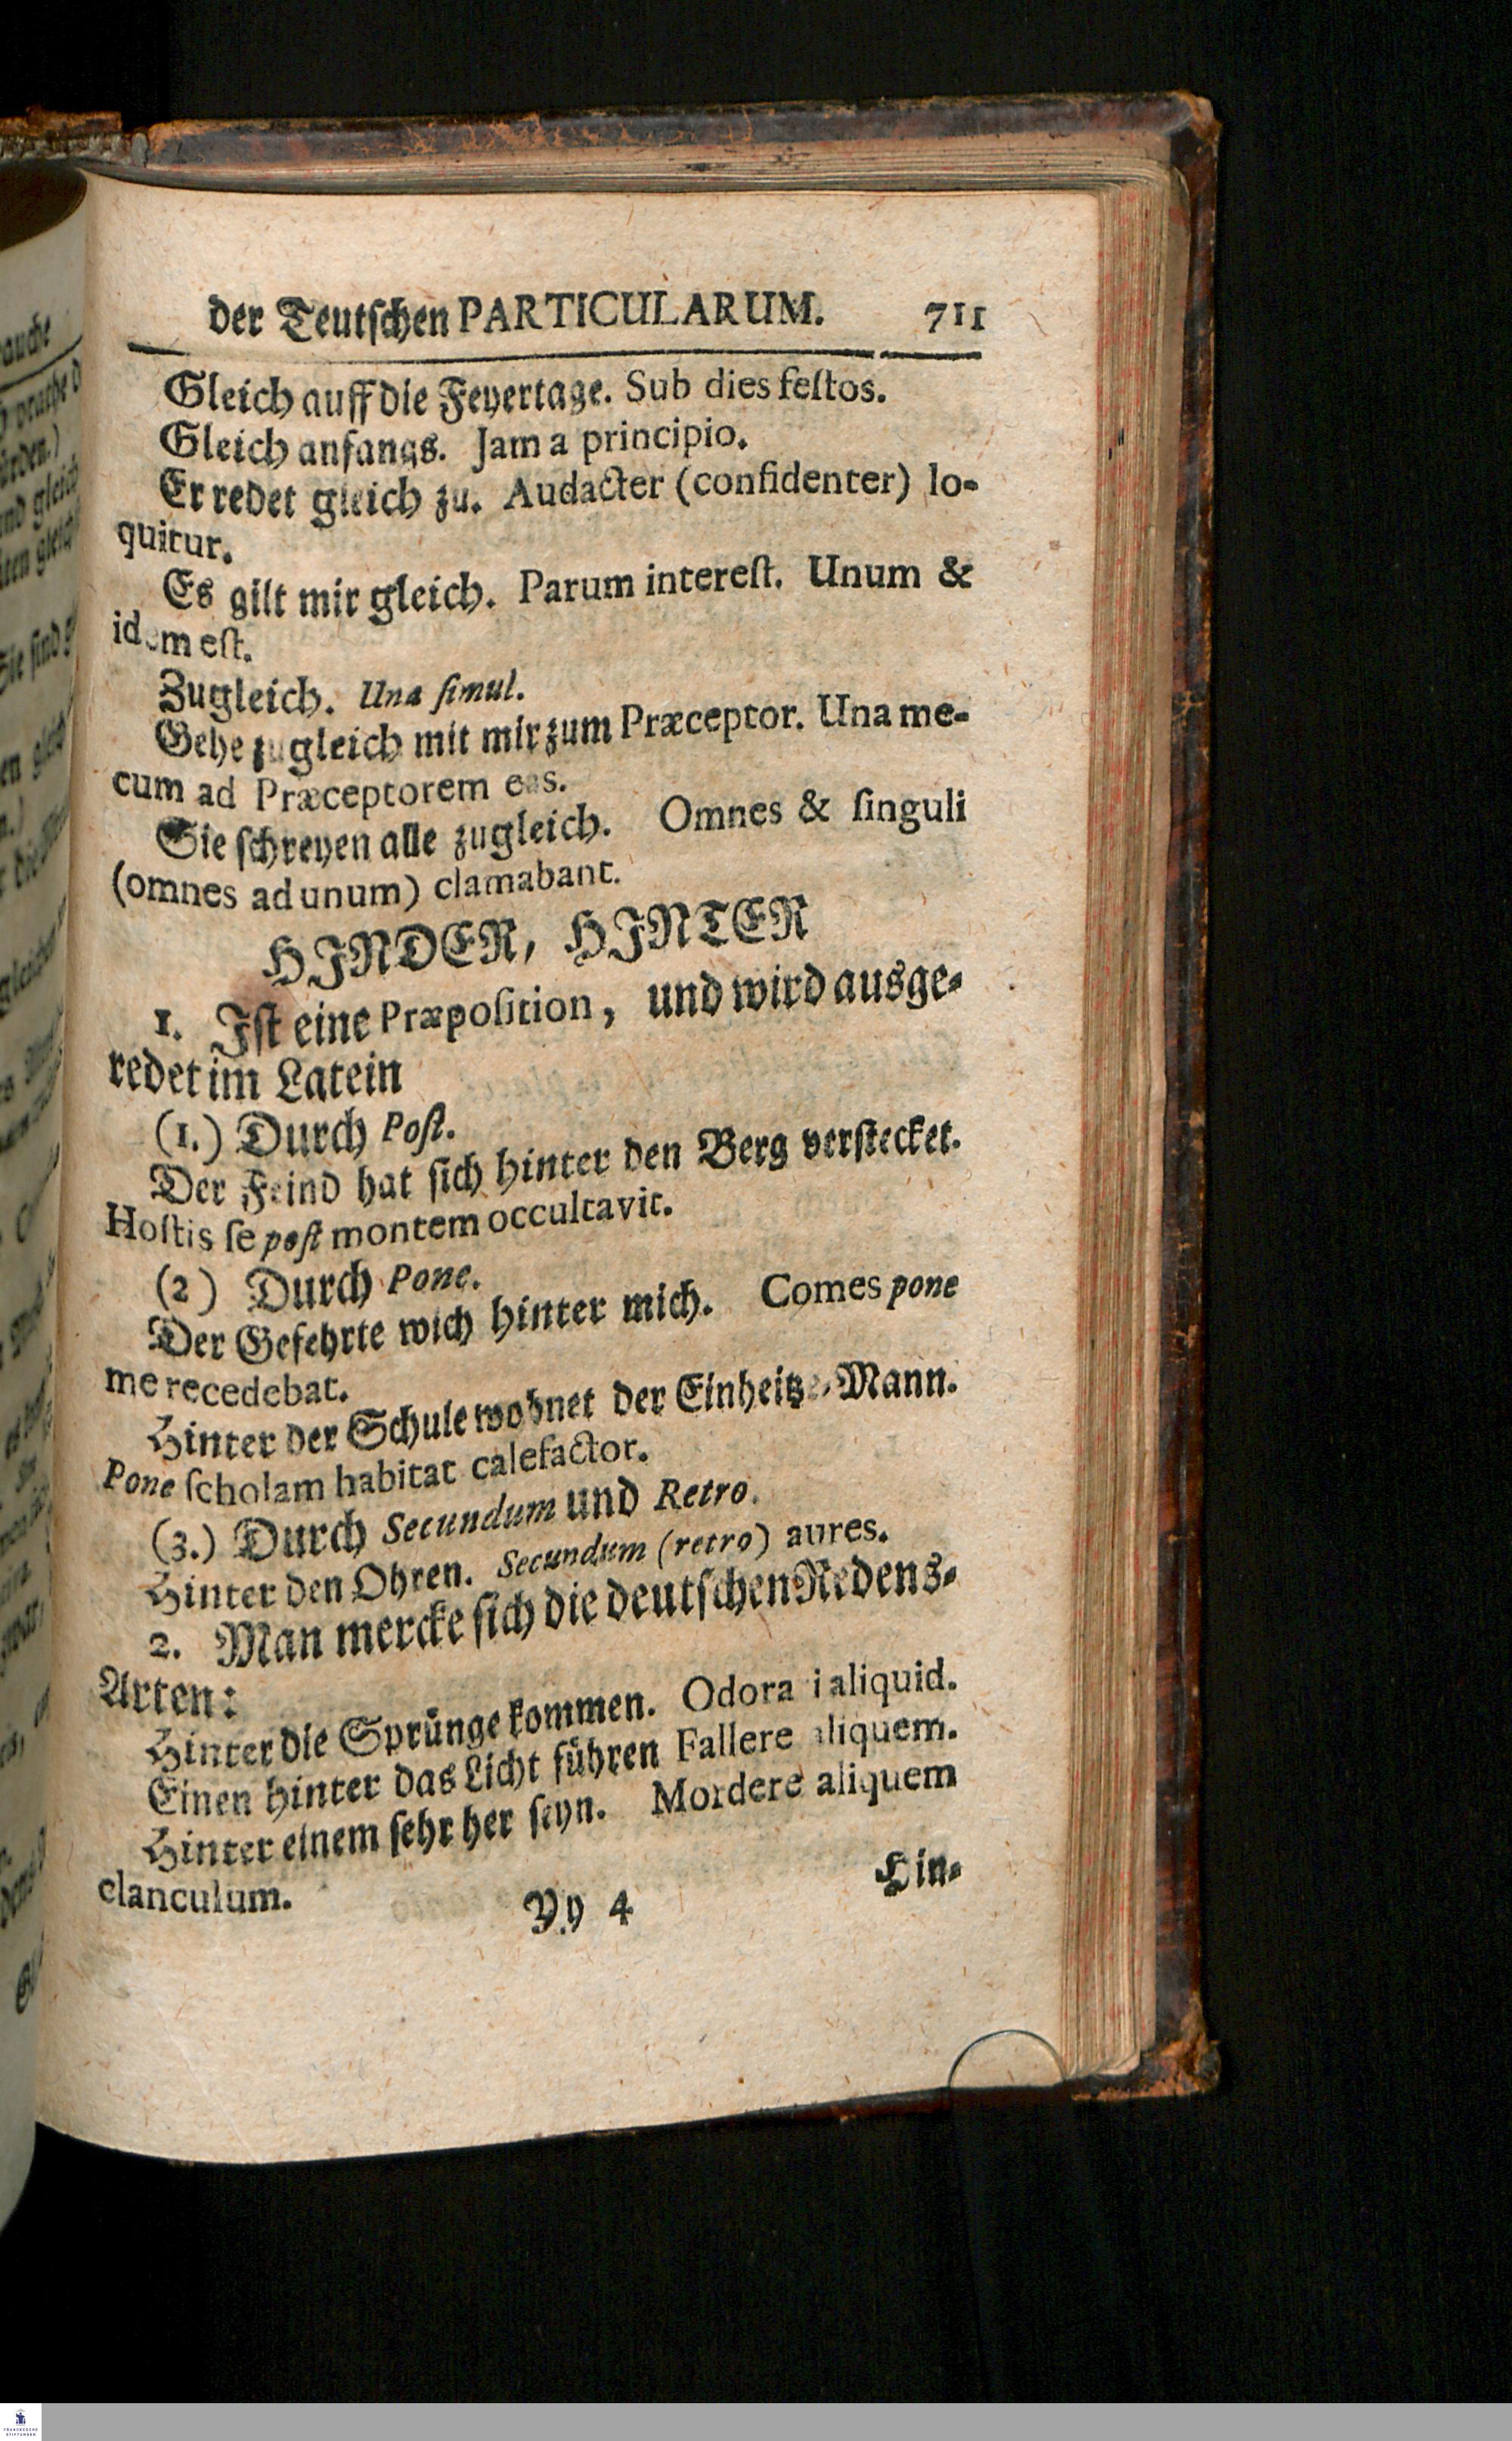 der Teutſchen PARTICULARUM. 711
Gleich auff die Feyertage. Sub dies feſtos.
Gleich anfangs. Jam a principio.
Er redet gleich zu. Audacter (confidenter) lo-
quitur.
Es gilt mir gleich. Parum intereſt. Unum &
idem eſt.
Zugleich. Una ſimul.
Gehe zugleich mit mir zum Præceptor. Una me-
cum ad Præceptorem eas.
Sie ſchreyen alle zugleich. Omnes & ſinguli
(omnes ad unum) clamabant.
HINDER, HINTER
1. Iſt eine Præpoſition, und wird ausge-
redet im Latein
(1.) Durch Poſt.
Der Feind hat ſich hinter den Berg verſtecket.
Hoſtis ſe poſt montem occultavit.
(2) Durch Pone.
Der Gefehrte wich hinter mich. Comes pone
me recedebat.
Hinter der Schule wohnet der Einheitze-Mann.
Pone ſcholam habitat calefactor.
(3.) Durch Secundum und Retro.
Hinter den Ohren. Secundum (retro) aures.
2. Man mercke ſich die deutſchen Redens-
Arten:
Hinter die Sprünge kommen. Odorari aliquid.
Einen hinter das Licht führen Fallere aliquem.
Hinter einem ſehr her ſeyn. Mordere aliquem
clanculum.
Yy 4 Hin-